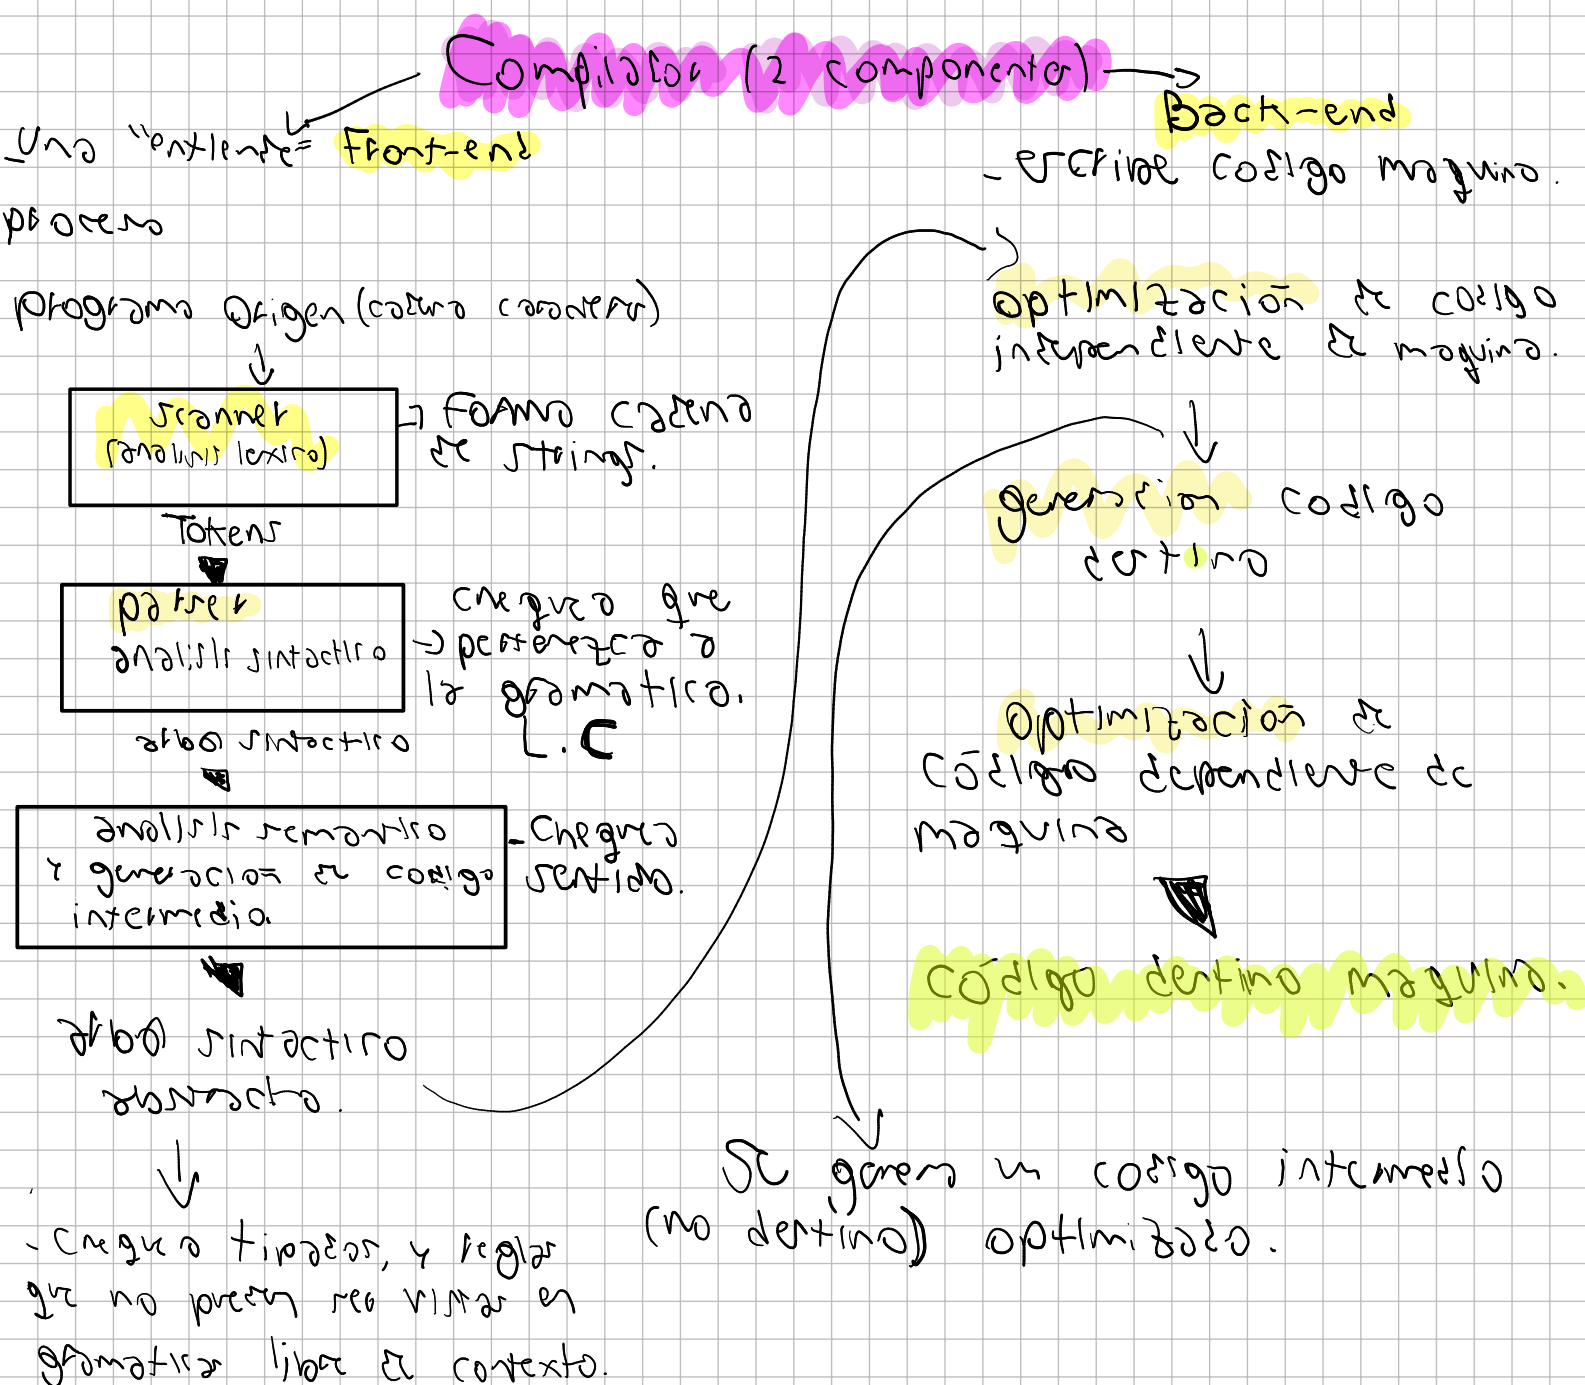 Compilador (2 componentes)
- Uno "entiende" = Front-end
proceso
programa Origen (cadena caracteres)
scanner
(analisis lexico)
→ FORMA cadena
de strings.
Tokens
parser
analisis sintactico
→ chequea que
pertenezca a
la gramatica.
L.C
arbol sintactico
analisis semantico
y generacion de codigo
intermedio.
- Chequea
sentido.
arbol sintactico
abstracto.
- chequea tipados, y reglas
que no pueden ser vistas en
gramaticas libre de contexto.
Back-end
- escribe codigo maquina.
optimización de codigo
independiente de maquina.
generacion codigo
destino
Optimización de
código dependiente de
maquina
código destino maquina.
Se genera un codigo intermedio
(no destino) optimizado.